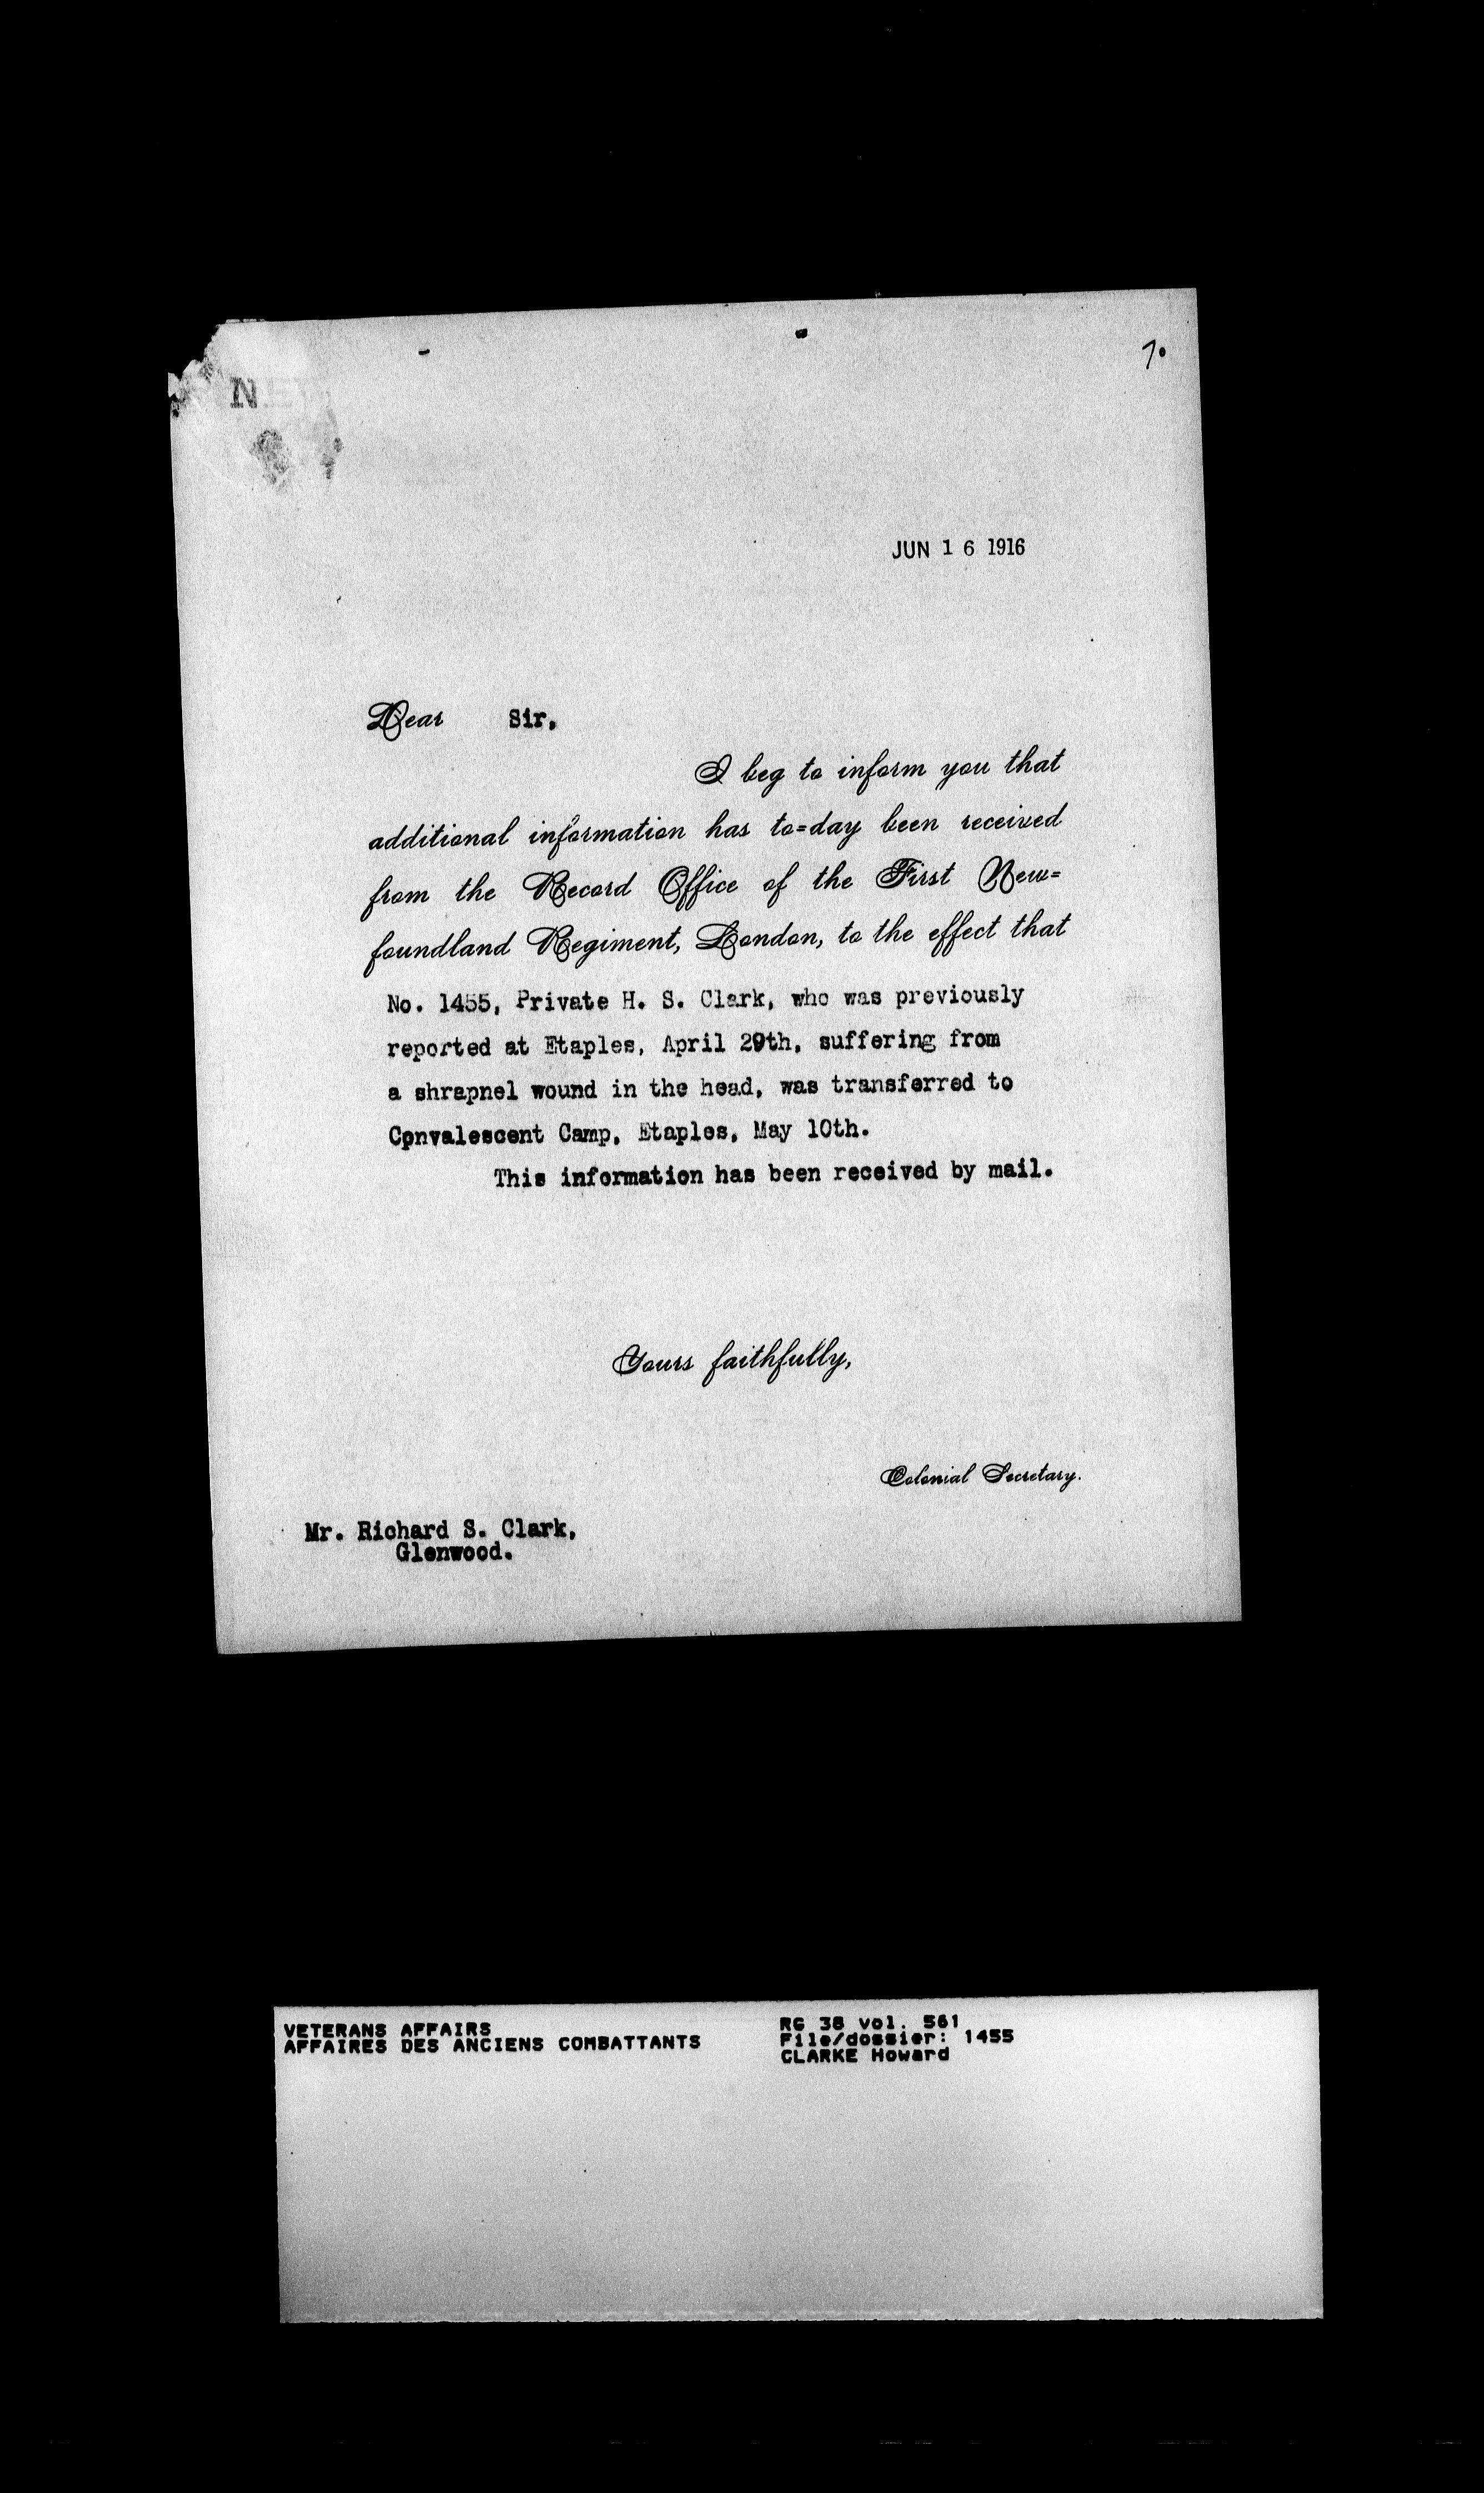 7.
JUN 16 1916
Dear Sir,
I beg to inform you that
additional information has to=day been received
from the Record Office of the First New=
foundland Regiment, London, to the effect that
No. 1455, Private H. S. Clark, who was previously
reported at Etaples, April 29th, suffering from
a shrapnel wound in the head, was transferred to
Cpnvalescent Camp, Etaples, May 10th.
This information has been received by mail.
Yours faithfully,
Colonial Secretary.
Mr. Richard S. Clark,
Glenwood.
VETERANS AFFAIRS
AFFAIRES DES ANCIENS COMBATTANTS
RG 38 vol. 561
File/dossier: 1455
CLARKE Howard